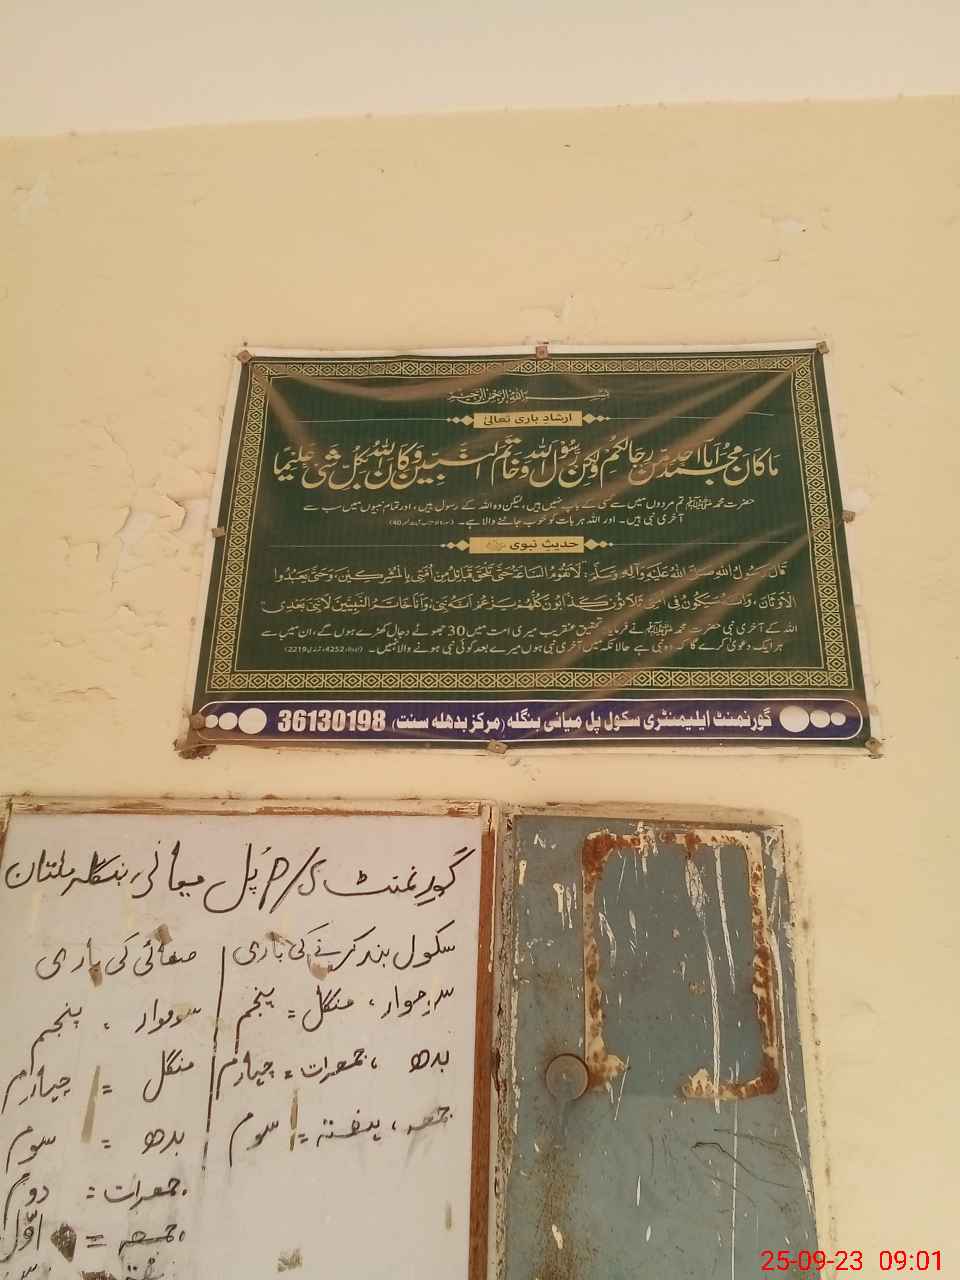 بسم الله الرحمن الرحیم
ارشاد باری تعالیٰ
مَا كَانَ مُحَمَّدٌ اَبَآ اَحَدٍ مِّنْ رِّجَالِكُمْ وَلٰكِنْ رَّسُوْلَ اللّٰهِ وَخَاتَمَ النَّبِيّٖنَ وَكَانَ اللّٰهُ بِكُلِّ شَیْءٍ عَلِيْمًا
حضرت محمد ﷺ تم مردوں میں سے کسی کے باپ نہیں ہیں، لیکن وہ اللہ کے رسول ہیں، اور تمام نبیوں میں سب سے
آخری نبی ہیں۔ اور اللہ ہر بات کو خوب جاننے والا ہے۔
حدیث نبوی ﷺ
قَالَ رَسُوْلُ اللهِ صَلَّى اللهُ عَلَيْهِ وَآلِهٖ وَسَلَّم: لَا تَقُوْمُ السَّاعَةُ حَتّٰى تَلْحَقَ قَبَائِلُ مِنْ اُمَّتِى بِالْمُشْرِكِيْنَ، وَحَتّٰى يَعْبُدُوا
الْاَوْثَانَ، وَاِنَّهٗ سَيَكُوْنُ فِى اُمَّتِى ثَلَاثُوْنَ كَذَّابُوْنَ كُلُّهُمْ يَزْعُمُ اَنَّهٗ نَبِىٌّ، وَاَنَا خَاتَمُ النَّبِيِّيْنَ لَا نَبِىَّ بَعْدِى
اللہ کے آخری نبی حضرت محمد ﷺ نے فرمایا: تحقیق عنقریب میری امت میں 30 جھوٹے دجال کھڑے ہوں گے، ان میں سے
ہر ایک دعویٰ کرے گا کہ وہ نبی ہے حالانکہ میں آخری نبی ہوں میرے بعد کوئی نبی ہونے والا نہیں۔
گورنمنٹ ایلیمنٹری سکول پل میانی بنگلہ (مرکز بدھلہ سنت) 36130198
گورنمنٹ پل میانی بنگلہ ملتان
سکول بند کرنے کی باری
سوموار، منگل = پنجم
بدھ، جمعرات = چہارم
جمعہ، ہفتہ = سوم
صفائی کی باری
سوموار، پنجم
منگل = چہارم
بدھ = سوم
جمعرات = دوم
جمعہ = اوّل
25-09-23 09:01